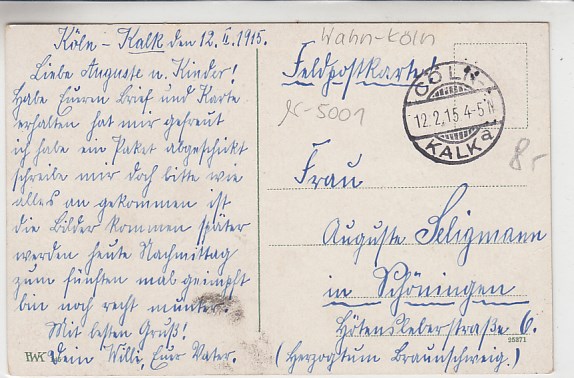 Köln - Kalk den 12. II. 1915.
Liebe Auguste u. Kinder!
Habe Euren Brief und Karte
erhalten hat mir gefreut
ich habe ein Paket abgeschickt
schreibe mir doch bitte wie
alles an gekommen ist
die Bilder kommen später
werden heute Nachmittag
zum fünften mal geimpft
bin noch recht munter.
Mit besten Gruß!
Dein Willi Euer Vater.
Wahn-Köln
Feldpostkarte!
CÖLN-
12.2.15 4-5N
KALK a
K-5001
8,-
Frau
Auguste Seligmann
in Schöningen
Hötensleberstraße 6.
(Herzogtum Braunschweig.)